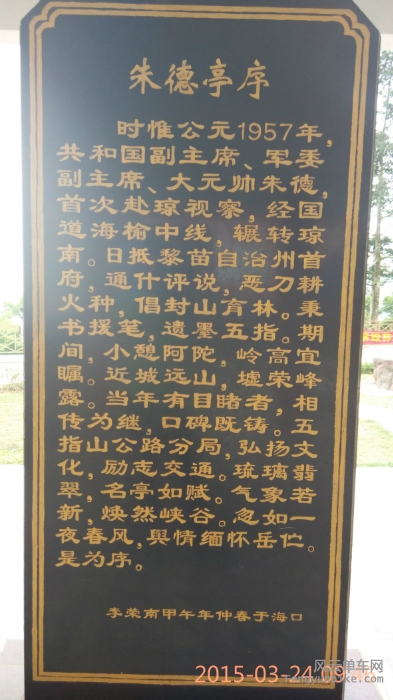 朱德亭序
时惟公元1957年，
共和国副主席、军委
副主席、大元帅朱德，
首次赴琼视察，经国
道海榆中线，辗转琼
南。日抵黎苗自治州首
府，通什评说，恶刀耕
火种，倡封山育林。秉
书援笔，遗墨五指。期
间，小憩阿陀，岭高宜
瞩。近城远山，墟荣峰
露。当年有目睹者，相
传为继，口碑既铸。五
指山公路分局，弘扬文
化，励志交通。琉璃翡
翠，名亭如赋。气象若
新，焕然峡谷。忽如一
夜春风，舆情缅怀岳伫。
是为序。
李荣南甲午年仲春于海口
2015-03-24 09